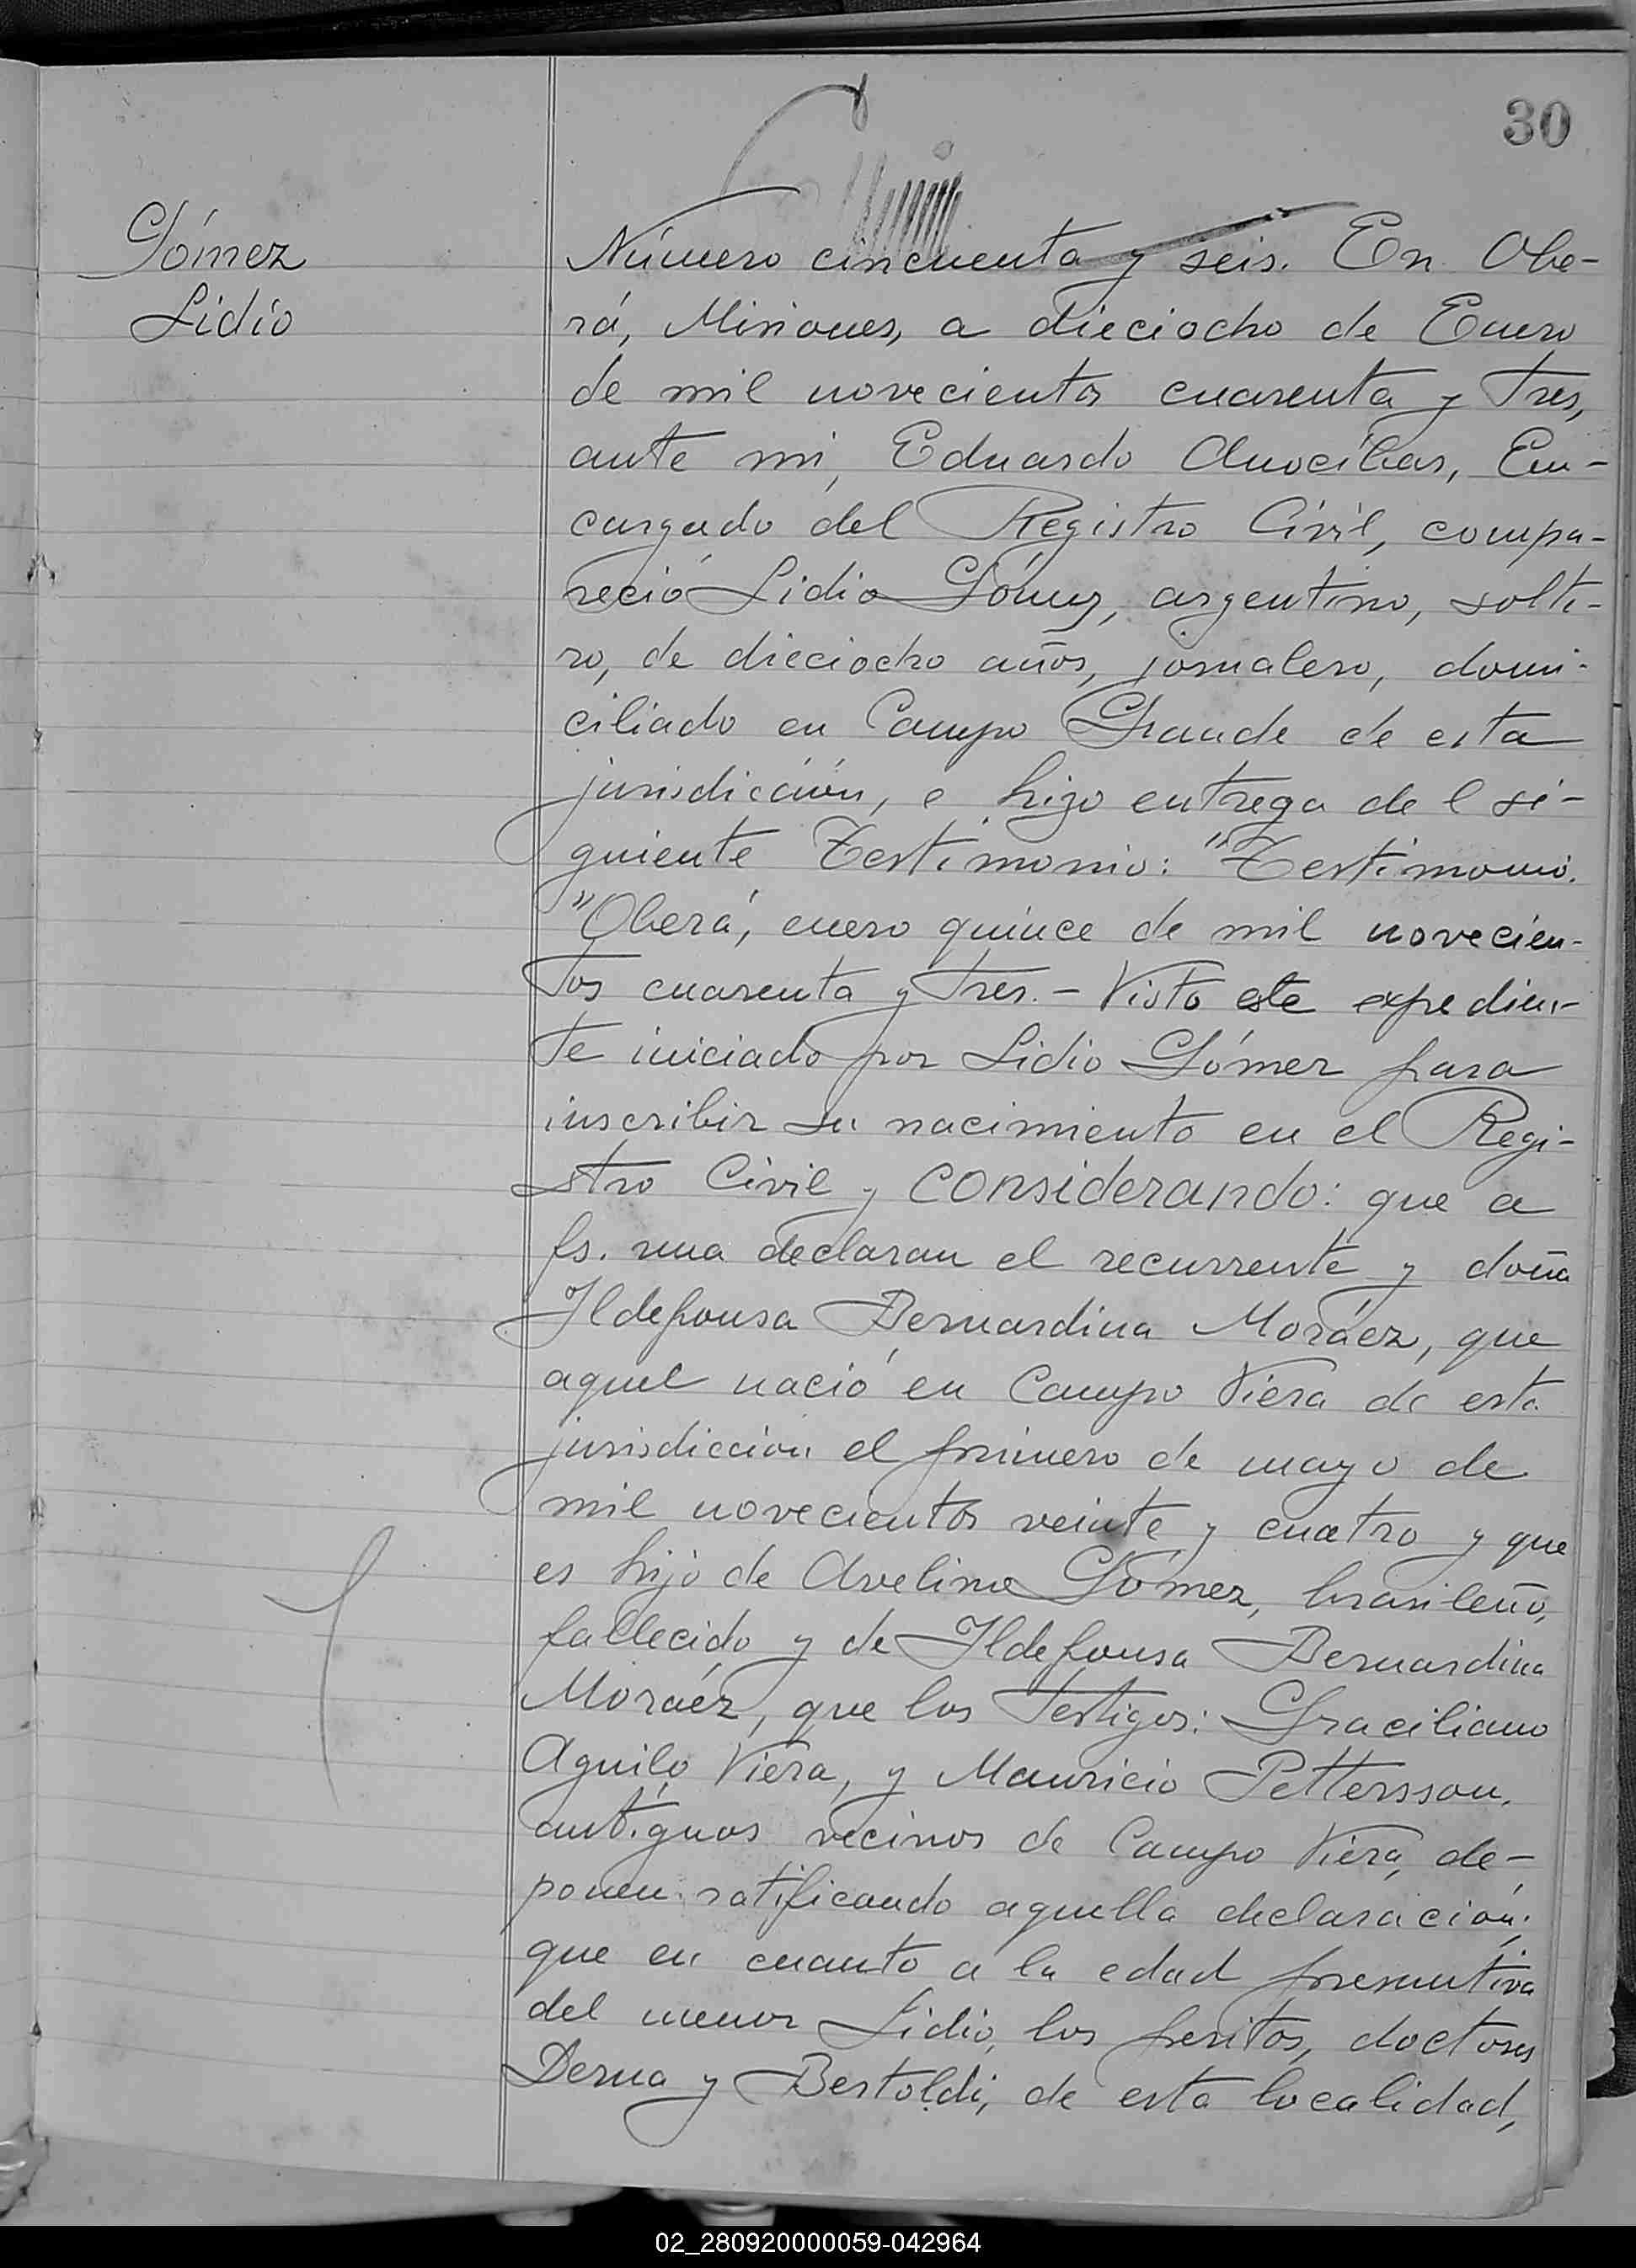 30
Gómez
Lidio
Número cincuenta y seis. En Obe-
rá, Misiones, a dieciocho de Enero
de mil novecientos cuarenta y tres,
ante mi, Eduardo Anocíbar, En-
cargado del Registro Civil, compa-
reció Lidio Gómez, argentino, solte-
ro, de dieciocho años, jornalero, domi-
ciliado en Campo Grande de esta
jurisdicción, e hizo entrega de l si-
guiente Testimonio: "Testimonio.
"Oberá, enero quince de mil novecien-
tos cuarenta y tres. - Visto este expedien-
te iniciado por Lidio Gómez para
inscribir su nacimiento en el Regi-
stro Civil y considerando: que a
fs. una declaran el recurrente y doña
Ildefonsa Bernardina Moráez, que
aquel nació en Campo Viera de esta
jurisdicción el primero de mayo de
mil novecientos veinte y cuatro y que
es hijo de Avelino Gómez, brasileño,
fallecido y de Ildefonsa Bernardina
Moráez, que los testigos: Graciliano
Aguilo Viera, y Mauricio Pettersson,
antiguos vecinos de Campo Viera, de-
ponen ratificando aquella declaración;
que en cuanto a la edad presuntiva
del menor Lidio, los peritos, doctores
Derna y Bertoldi, de esta localidad,
02_280920000059-042964